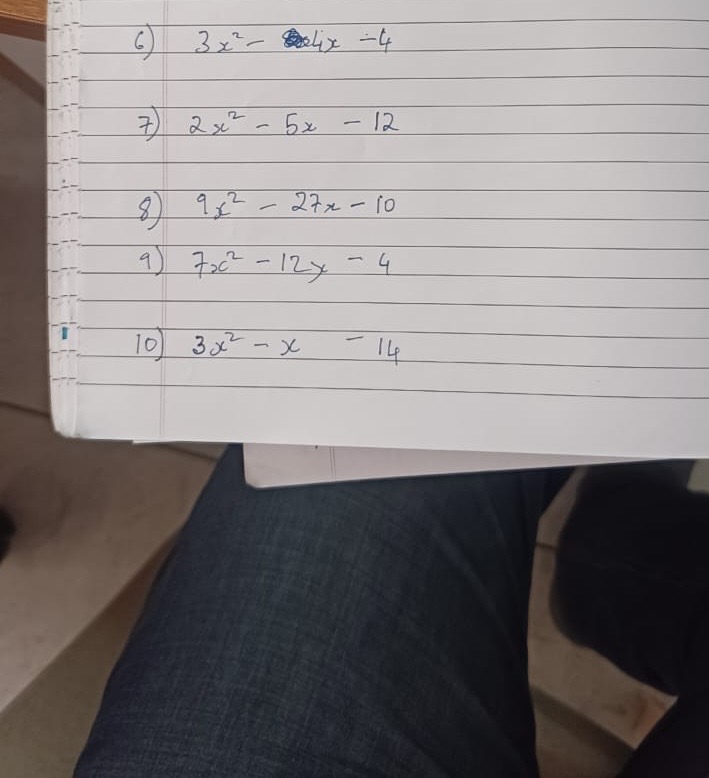 6) 3x² - 4x - 4
7) 2x² - 5x - 12
8) 9x² - 27x - 10
9) 7x² - 12x - 4
10) 3x² - x - 14